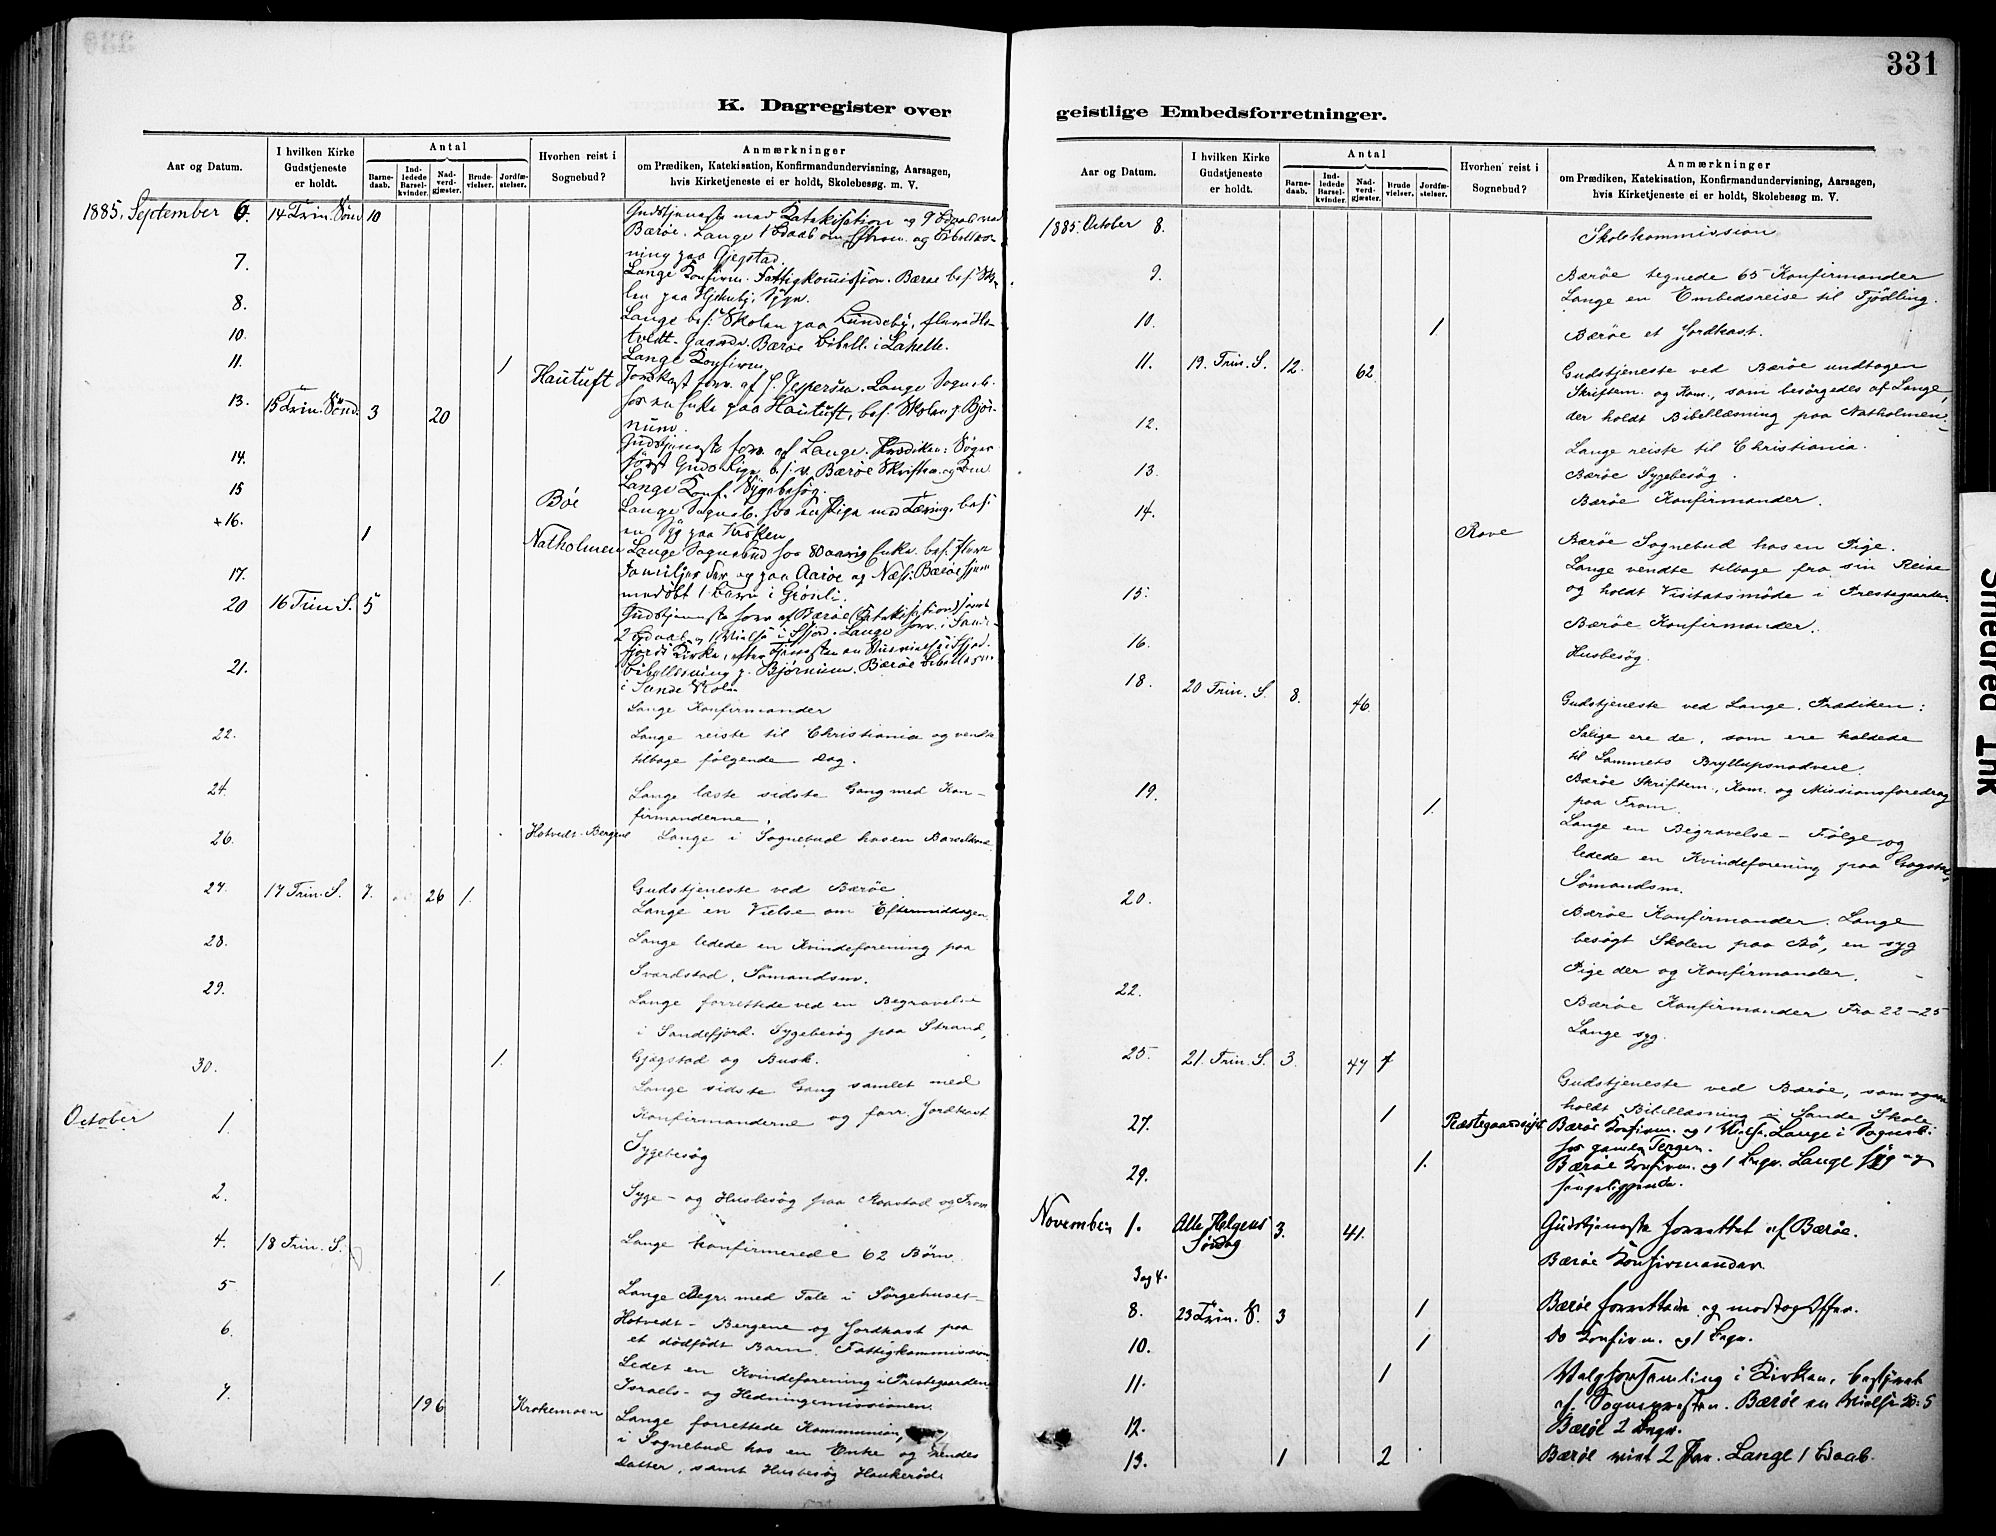 331
K. Dagregister over
geistlige Embedsforretninger.
Aar og Datum.
I hvilken Kirke Gudstjeneste er holdt.
Antal
Barnedaab.
Indledede Barselkvinder.
Nadverdgjæster.
Brudevielser.
Jordfæstelser.
Hvorhen reist i Sognebud?
Anmærkninger
om Prædiken, Katekisation, Konfirmandundervisning, Aarsagen,
hvis Kirketjeneste ei er holdt, Skolebesøg m. V.
1885, September 6. 14 Trin. Sønd 10 Gudstjeneste med Katekisation og 9 Bdaab ved
Bærøe. Lange 1 Bdaab om Efterm. og Bibellæs-
ning paa Gjegstad.
7. Lange Konfirm. Fattigkomission. Bærøe bes. Sko-
len paa
8. Lange bes. Skolen paa Lundeby, flere Ho-
tvedt-Gaarde. Bærøe Bibell. i Lahelle.
10. Lange Konfirm.
11. 1 Hautuft Jordkast forr. af J. Jespersen. Lange Sogneb.
hos en Enke paa Hautuft, bes. Skolen p. Bjør-
num.
13. 15 Trin. Sønd. 3 20 Gudstjeneste forr. af Lange. Prædiken: Søger
først Guds Rige, bes. v. Bærøe Skriftem. og Kom
14. Lange Konf. Sygebesøg.
15 Bøe Lange Sogneb. hos en Pige med Tæring, bes.
en Syg paa Kroken
+16. 1 Natholmen Lange Sognebud hos 80 aarig Enke. bes. flere
Familjer der og paa Aarøe og Næs. Bærøe hjem-
medøbt 1 Barn i Grønli.
17.
20 16 Trin S. 5 Gudstjeneste forr. af Bærøe (Katekisation) samt
2 Bdaab og 1 Vielse i Sfjord. Lange forr. i Sande-
fjords Kirke, efter Tjenesten en Husvielse i Sfjord.
Bibellæsning p. Bjørnum. Bærøe Bibellæsn.
i Sande Skole
21. Lange Konfirmander
22. Lange reiste til Christiania og vendte
tilbage følgende Dag.
24. Lange læste sidste Gang med Kon-
firmanderne.
26. Hotvedt-Bergene Lange i Sognebud hos en Barselkone
27. 17 Trin. S. 7. 26 1. Gudstjeneste ved Bærøe
Lange en Vielse om Eftermiddagen
28. Lange ledede en Kvindeforening paa
Sverdstad, Sømandsm.
29. Lange forrettede ved en Begravelse
i Sandefjord. Sygebesøg paa Strand,
Gjegstad og Busk.
30. 1. Lange sidste Gang samlet med
Konfirmanderne og forr. Jordkast
October 1. Sygebesøg
2. Syge- og Husbesøg paa Raastad og From
4. 18 Trin. S. Lange konfirmerede 62 Børn.
5 1. Lange Begr. med Tale i Sørgehuset
Hotvedt-Bergene og Jordkast paa
et dødfødt Barn. Fattigkommission
6. Ledet en Kvindeforening i Prestegaarden
Israels- og Hedningemissionen.
7. 196 Krokemoen Lange forrettede Kommunion,
i Sognebud hos en Enke og hendes
Datter, samt Husbesøg Haukerød
Aar og Datum.
I hvilken Kirke Gudstjeneste er holdt.
Antal
Barnedaab.
Indledede Barselkvinder.
Nadverdgjæster.
Brudevielser.
Jordfæstelser.
Hvorhen reist i Sognebud?
Anmærkninger
om Prædiken, Katekisation, Konfirmandundervisning, Aarsagen,
hvis Kirketjeneste ei er holdt, Skolebesøg m. V.
1885. October 8. Skolekommission
9. Bærøe tegnede 65 Konfirmander
Lange en Embedsreise til Tjödling.
10. 1 Bærøe et Jordkast.
11. 19. Trin. S. 12. 62. Gudstjeneste ved Bærøe undtagen
Skriftem. og Kom., som besørgedes af Lange,
der holdt Bibellæsning paa Natholmen.
12. Lange reiste til Christiania.
13. Bærøe Sygebesøg.
Bærøe Konfirmander.
14. Rove Bærøe Sognebud hos en Pige.
Lange vendte tilbage fra sin Reise
15. og holdt Visitatsmøde i Prestegaarden
Bærøe Konfirmander.
16. Husbesøg.
18. 20 Trin. S. 8. 46. Gudstjeneste ved Lange. Prædiken:
Salige ere de, som ere kaldede
til Lammets Bryllupsnadvere.
Bærøe Skriftem., Kom. og Missionsforedrag
paa From.
19. 1. Lange en Begravelse - Følge og
ledede en Kvindeforening paa Gogstad,
Sømandsm.
20. Bærøe Konfirmander. Lange
besøgt Skolen paa Bö, en syg
Pige der og Konfirmander.
22. Bærøe Konfirmander Fra 22-25
Lange syg.
25. 21. Trin. S. 3. 47 1 Gudstjeneste ved Bærøe, som ogsaa
holdt Bibellæsning i Sande Skole
27. 1 Bærøe Konfirm. og 1 Vielse. Lange i Sogneb.
hos gamle Jørgen.
29. 1. Bærøe Konfirm. og 1 Begr. Lange syg og
sengeliggende.
November 1. Alle Helgens Søndag 3. 41. Gudstjeneste forrettet af Bærøe.
3 og 4. Bærøe Konfirmander
8. 23 Trin. S. 3 1 Bærøe forrettede og modtog Offer.
10. 1 Do Konfirm. og 1 Begr.
11. 1 Valgforsamling i Kirken, bestyret
af Sognepresten. Bærøe en Vielse
12. Bærøe 2 Begr.
13. 1 2 Bærøe viet 2 Par. Lange 1 Bdaab.
Smedrød Ink